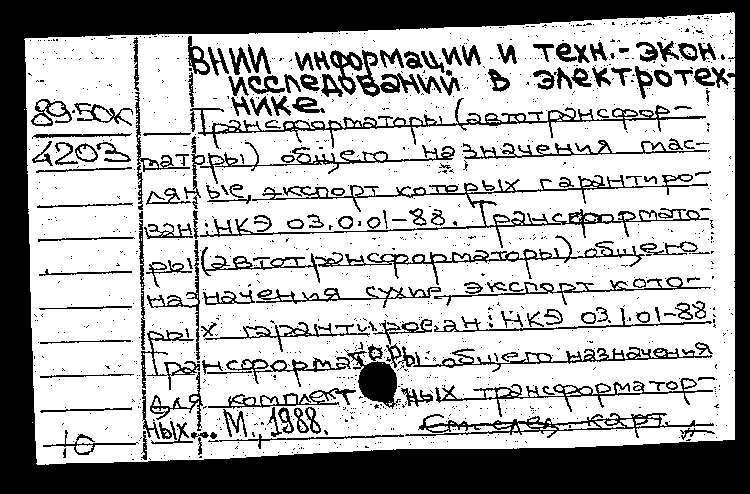 ВНИИ информации и техн.-экон.
исследований в электротех-
нике.
89-50К
Трансформаторы (автотрансфор-
4203
маторы) общего назначения мас-
ляные, экспорт которых гарантиро-
ван: НКЭ 03.0.01-88. Трансформато-
ры (автотрансформаторы) общего
назначения сухие, экспорт кото-
рых гарантирован: НКЭ 03.1.01-88
Трансформаторы общего назначения
для комплектных трансформатор-
ных... М., 1988. См. след. карт.
10